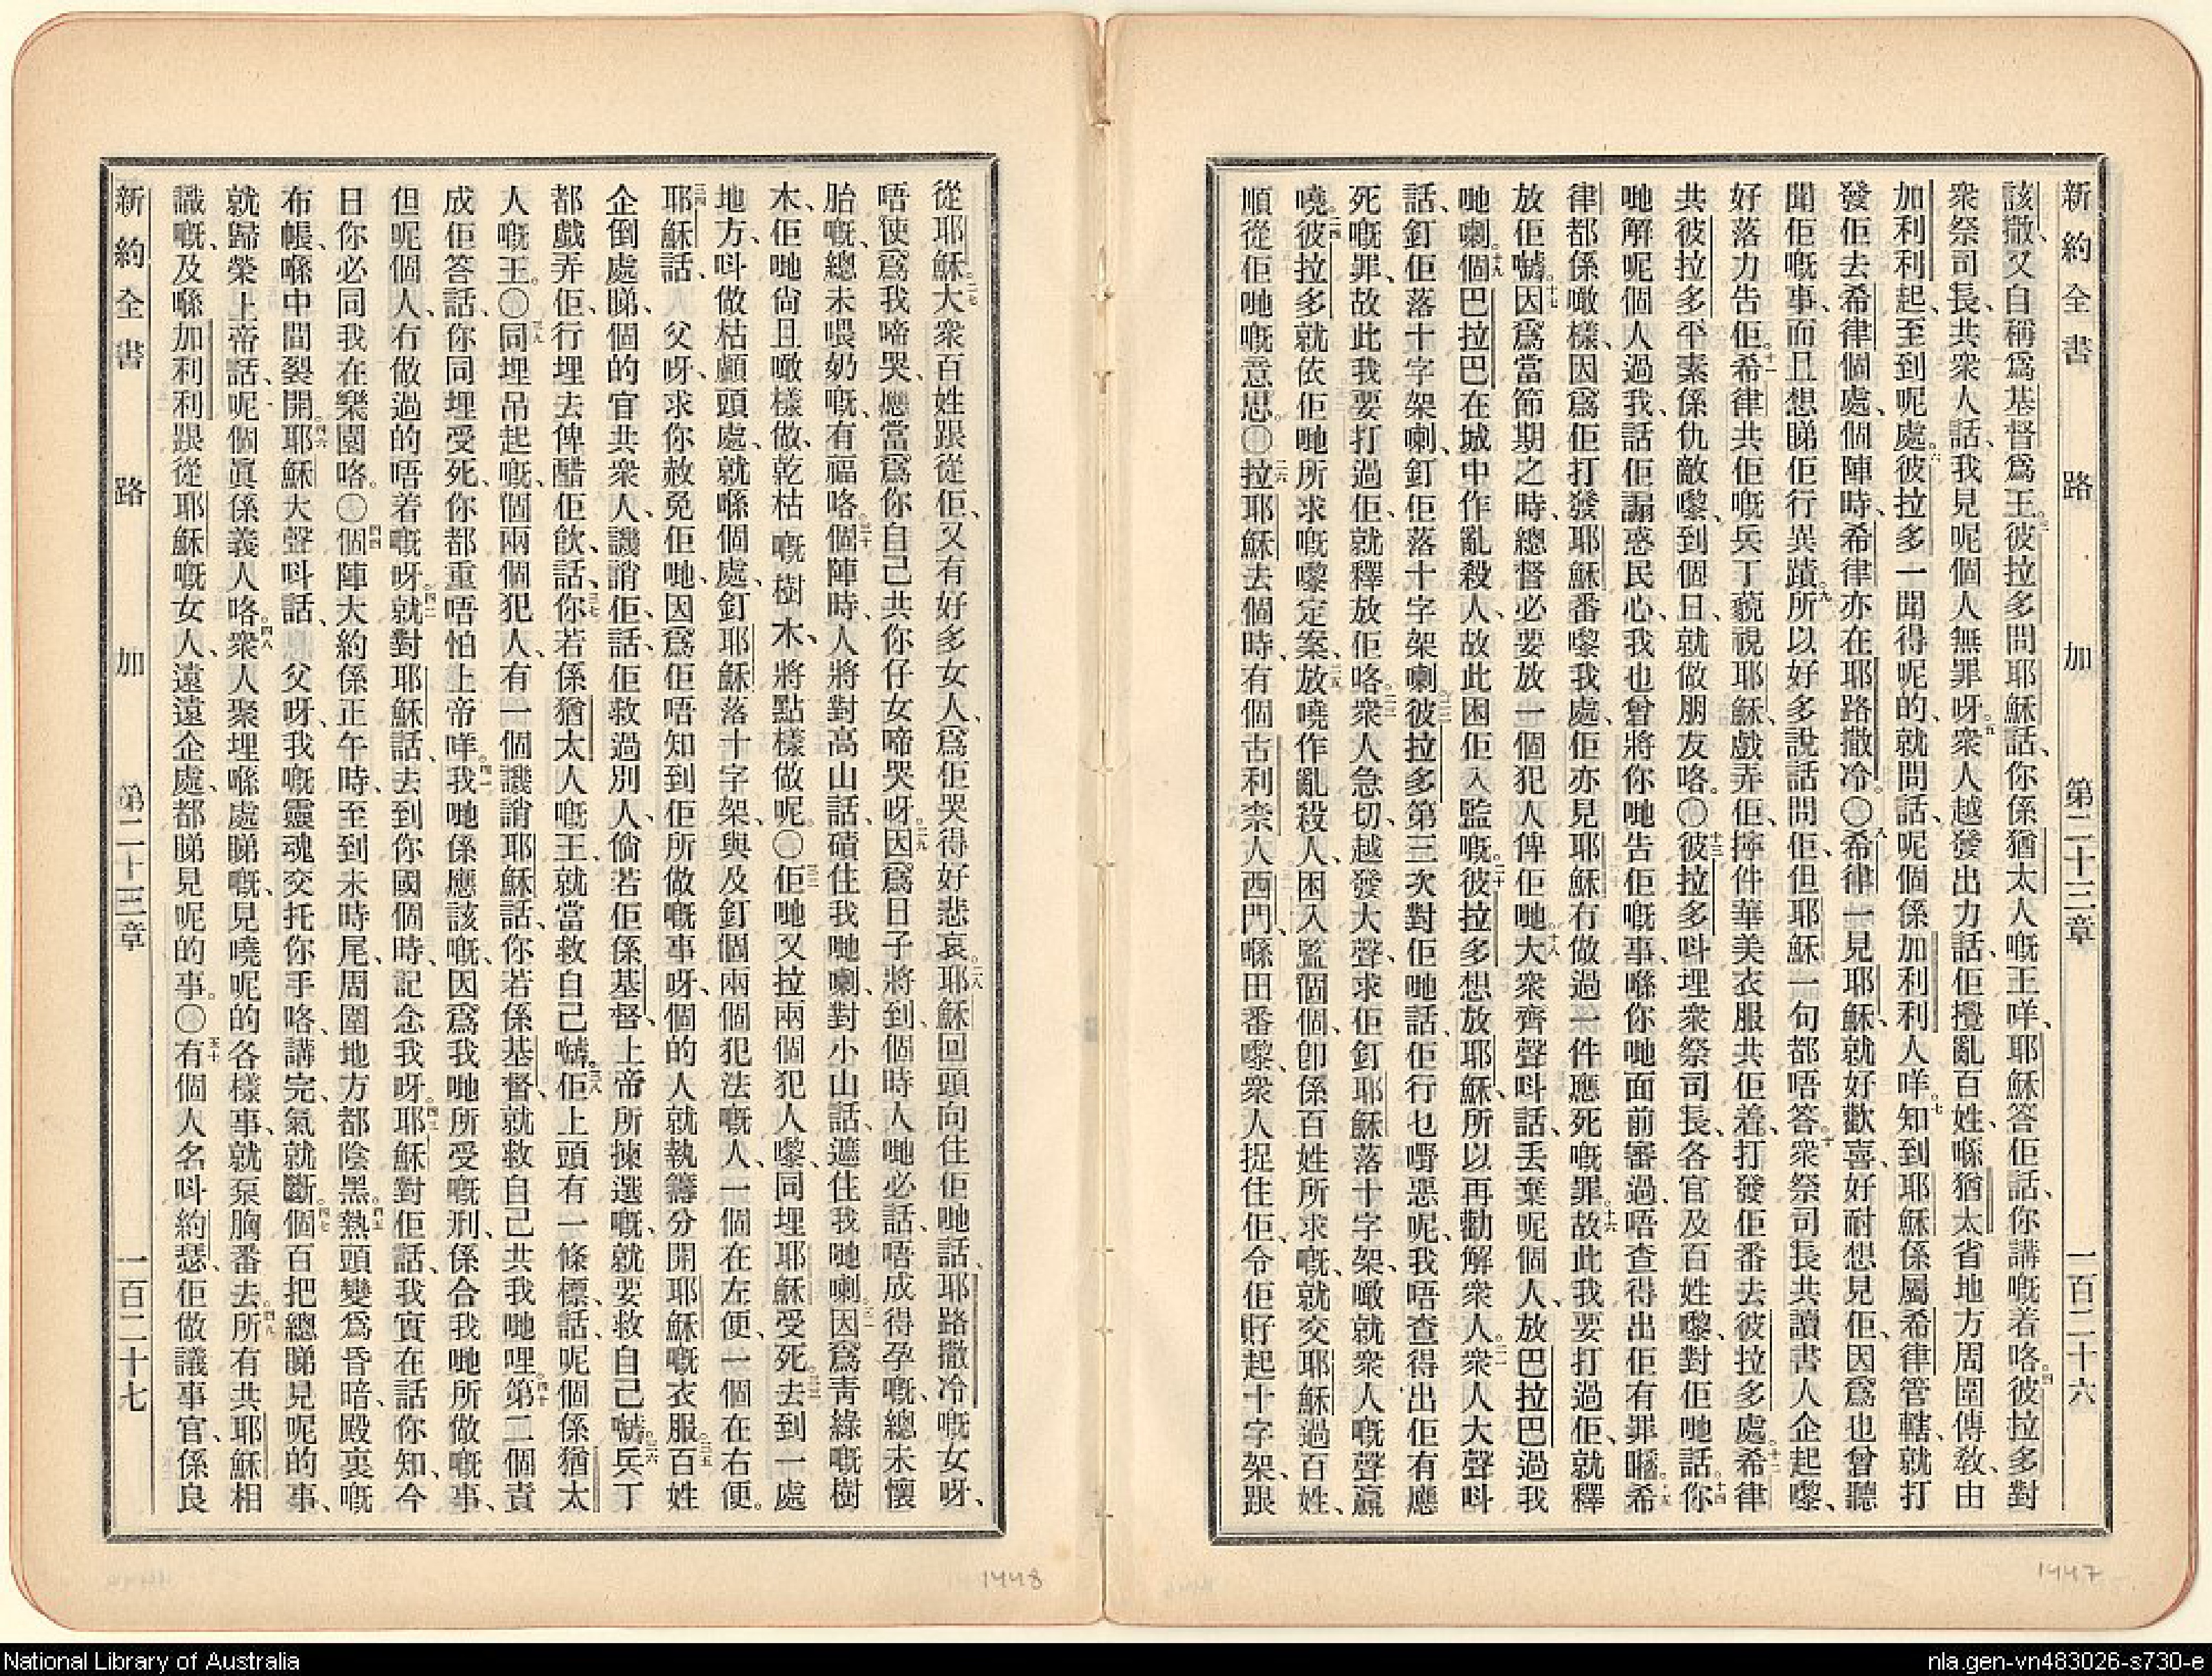 新約全書 路加 第二十三章 一百二十六
該撒、又自稱爲基督爲王。三彼拉多問耶穌話、你係猶太人嘅王咩、耶穌答佢話、你講嘅着咯。四彼拉多對
衆祭司長、共衆人話、我見呢個人無罪呀。五衆人越發出力話、佢攪亂百姓、喺猶太省地方周圍傳教、由
加利利起、至到呢處。六彼拉多一聞得呢的、就問話、呢個係加利利人咩。七知到耶穌係屬希律管轄、就打
發佢去希律個處、個陣時、希律亦在耶路撒冷。〇八希律一見耶穌、就好歡喜、好耐想見佢、因爲也曾聽
聞佢嘅事、而且想睇佢行異蹟。九所以好多說話問佢、但耶穌一句都唔答。十衆祭司長共讀書人企起嚟、
好落力告佢。十一希律共佢嘅兵丁藐視耶穌、戲弄佢、擰件華美衣服共佢着、打發佢番去彼拉多處。十二希律
共彼拉多、平素係仇敵嚟、到個日、就做朋友咯。〇十三彼拉多呌埋衆祭司長、各官及百姓嚟、對佢哋話。十四你
哋解呢個人過我、話佢誵惑民心、我也曾將你哋告佢嘅事、喺你哋面前審過、唔查得出佢有罪𠺢。十五希
律都係噉樣、因爲佢打發耶穌番嚟我處、佢亦見耶穌冇做過一件應死嘅罪。十六故此我要打過佢、就釋
放佢𠻹。十七因爲當節期之時、總督必要放一個犯人俾佢哋。十八大衆齊聲呌話、丢棄呢個人、放巴拉巴過我
哋喇。十九個巴拉巴、在城中作亂殺人、故此困佢入監嘅。二十彼拉多想放耶穌、所以再勸解衆人。二一衆人大聲呌
話、釘佢落十字架喇、釘佢落十字架喇。二二彼拉多第三次對佢哋話、佢行乜嘢惡呢、我唔查得出佢有應
死嘅罪、故此我要打過佢、就釋放佢咯。二三衆人急切、越發大聲、求佢釘耶穌落十字架、噉就衆人嘅聲贏
嘵。二四彼拉多就依佢哋所求嘅嚟定案、二五放嘵作亂殺人、困入監個個、卽係百姓所求嘅、就交耶穌過百姓、
順從佢哋嘅意思。〇二六拉耶穌去個時、有個古利柰人西門、喺田番嚟、衆人捉住佢、令佢𢬿起十字架、跟
從耶穌。二七大衆百姓跟從佢、又有好多女人、爲佢哭得好悲哀。二八耶穌回頭向住佢哋話、耶路撒冷嘅女呀、
唔使爲我啼哭、應當爲你自己共你仔女啼哭呀。二九因爲日子將到、個時人哋必話、唔成得孕嘅、總未懷
胎嘅、總未喂奶嘅、有福咯。三十個陣時、人將對高山話、磧住我哋喇、對小山話、遮住我哋喇。三一因爲靑綠嘅樹
木、佢哋尙且噉樣做、乾枯嘅樹木、將點樣做呢。〇三二佢哋又拉兩個犯人嚟、同埋耶穌受死。三三去到一處
地方、呌做枯顱頭處、就喺個處、釘耶穌落十字架、與及釘個兩個犯法嘅人、一個在左便、一個在右便。
三四耶穌話、父呀、求你赦免佢哋、因爲佢唔知到佢所做嘅事呀、個的人就執籌分開耶穌嘅衣服。三五百姓
企倒處睇、個的官共衆人、譏誚佢、話、佢救過別人、倘若佢係基督、上帝所揀選嘅、就要救自己𠻹。三六兵丁
都戲弄佢、行埋去俾醋佢飮、話、三七你若係猶太人嘅王、就當救自己𠻹。三八佢上頭有一條標、話、呢個係猶太
人嘅王。〇三九同埋吊起嘅、個兩個犯人、有一個譏誚耶穌話、你若係基督、就救自己共我哋哩。四十第二個責
成佢答話、你同埋受死、你都重唔怕上帝咩。四一我哋係應該嘅、因爲我哋所受嘅刑、係合我哋所做嘅事、
但呢個人、冇做過的唔着嘅呀。四二就對耶穌話、去到你國個時、記念我呀。四三耶穌對佢話、我實在話你知、今
日你必同我在樂園咯。〇四四個陣大約係正午時、至到未時尾、周圍地方都陰黑。四五熱頭變爲昏暗、殿裏嘅
布帳、喺中間裂開。四六耶穌大聲呌話、父呀、我嘅靈魂交托你手咯、講完、氣就斷。四七個百把總睇見呢的事、
就歸榮上帝話、呢個眞係義人咯。四八衆人聚埋喺處睇嘅、見嘵呢的各樣事、就泵胸番去。四九所有共耶穌相
識嘅、及喺加利利跟從耶穌嘅女人、遠遠企處、都睇見呢的事。〇五十有個人名呌約瑟、佢做議事官、係良
新約全書 路加 第二十三章 一百二十七
1448
1447
National Library of Australia
nla.gen-vn483026-s730-e